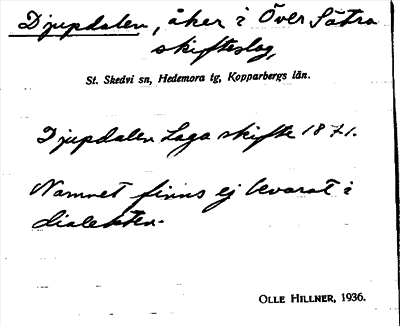 Djupdalen, åker i Över Sätra
skifteslag,
St. Skedvi sn, Hedemora tg, Kopparbergs län.
Djupdalen Laga skifte 1871.
Namnet finns ej kvarat i
dialekten.
OLLE HILLNER, 1936.